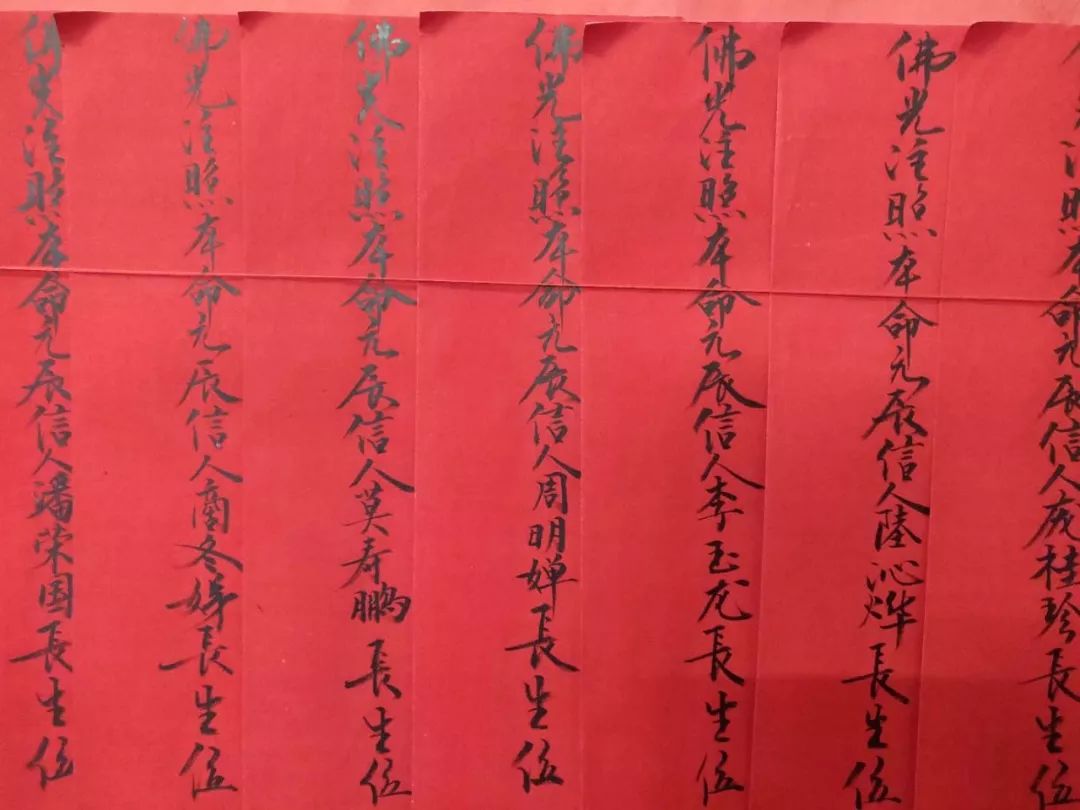 光注照本命元辰信人庞桂珍長生位
佛光注照本命元辰信人陸沁烨長生位
佛光注照本命元辰信人李玉龙長生位
佛光注照本命元辰信人周明婵長生位
佛光注照本命元辰信人莫寿鵬長生位
佛光注照本命元辰信人商冬娣長生位
佛光注照本命元辰信人潘荣国長生位